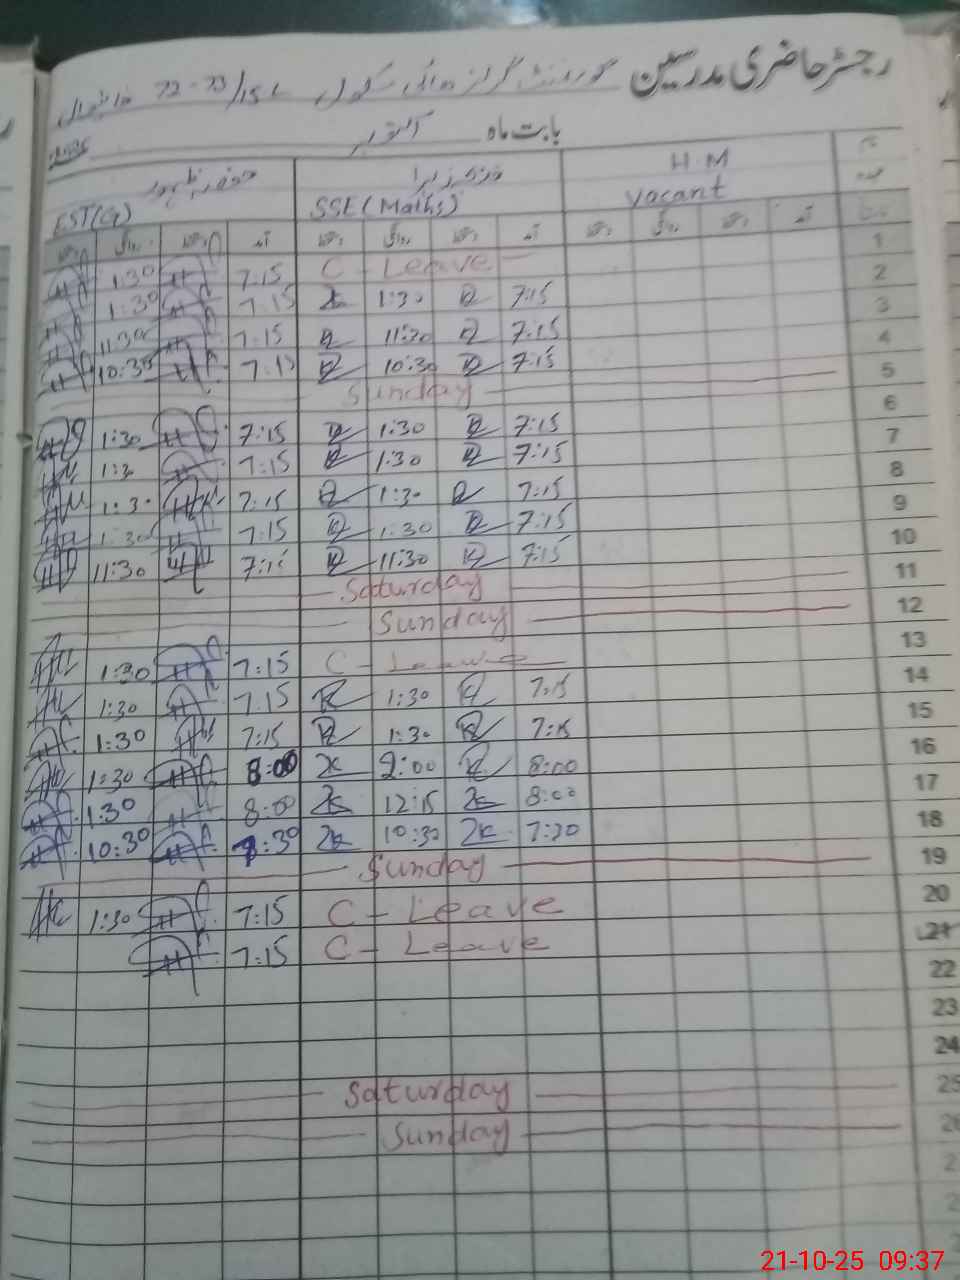 رجسٹر حاضری مدرسین گورنمنٹ گرلز ہائی سکول 72-73/15L خانیوال
بابت ماہ اکتوبر
H.M vacant
SSE (Maths)
EST(G)
آمد
1 C - Leave 7:15 1:30
2 7:15 1:30 7:15 1:30
3 7:15 11:30 7:15 11:30
4 7:15 10:30 7:15 10:30
5 Sunday
6 7:15 1:30 7:15 1:30
7 7:15 1:30 7:15
8 7:15 1:30 7:15 1:30
9 7:15 1:30 7:15 1:30
10 7:15 11:30 7:15 11:30
11 Saturday
12 Sunday
13 C - Leave 7:15 1:30
14 7:15 1:30 7:15 1:30
15 7:15 1:30 7:15 1:30
16 8:00 2:00 8:00 1:30
17 8:00 12:15 8:00 1:30
18 7:30 10:30 7:30 10:30
19 Sunday
20 C - Leave 7:15 1:30
21 C - Leave 7:15
22
23
24
25 Saturday
26 Sunday
21-10-25 09:37